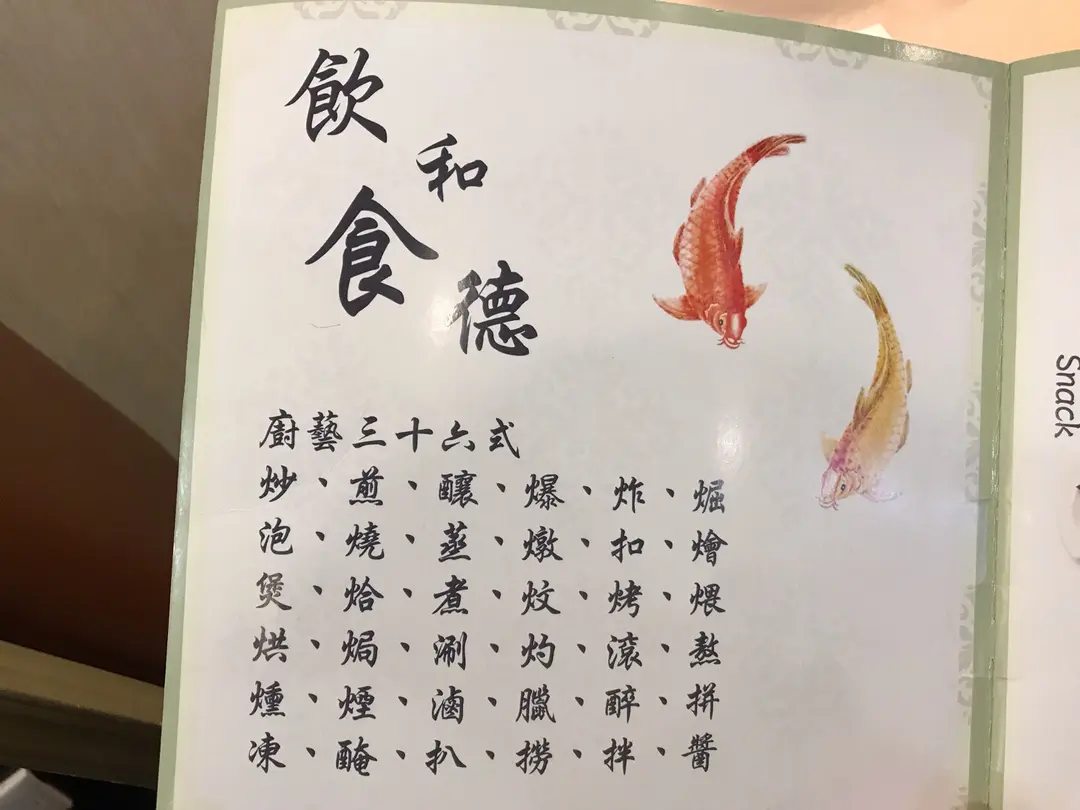 飲
和
食
德
廚藝三十六式
炒、煎、釀、爆、炸、焗
泡、燒、蒸、燉、扣、燴
煲、烚、煮、炆、烤、煨
烘、焗、涮、灼、滾、熬
燻、煙、滷、臘、醉、拼
凍、醃、扒、撈、拌、醬
Snack